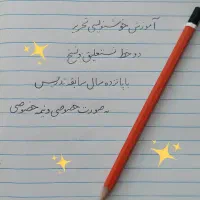 آموزش خوشنویسی تحریر
در دو خط نستعلیق و نسخ
با پانزده سال سابقه تدریس
به صورت خصوصی و نیمه خصوصی